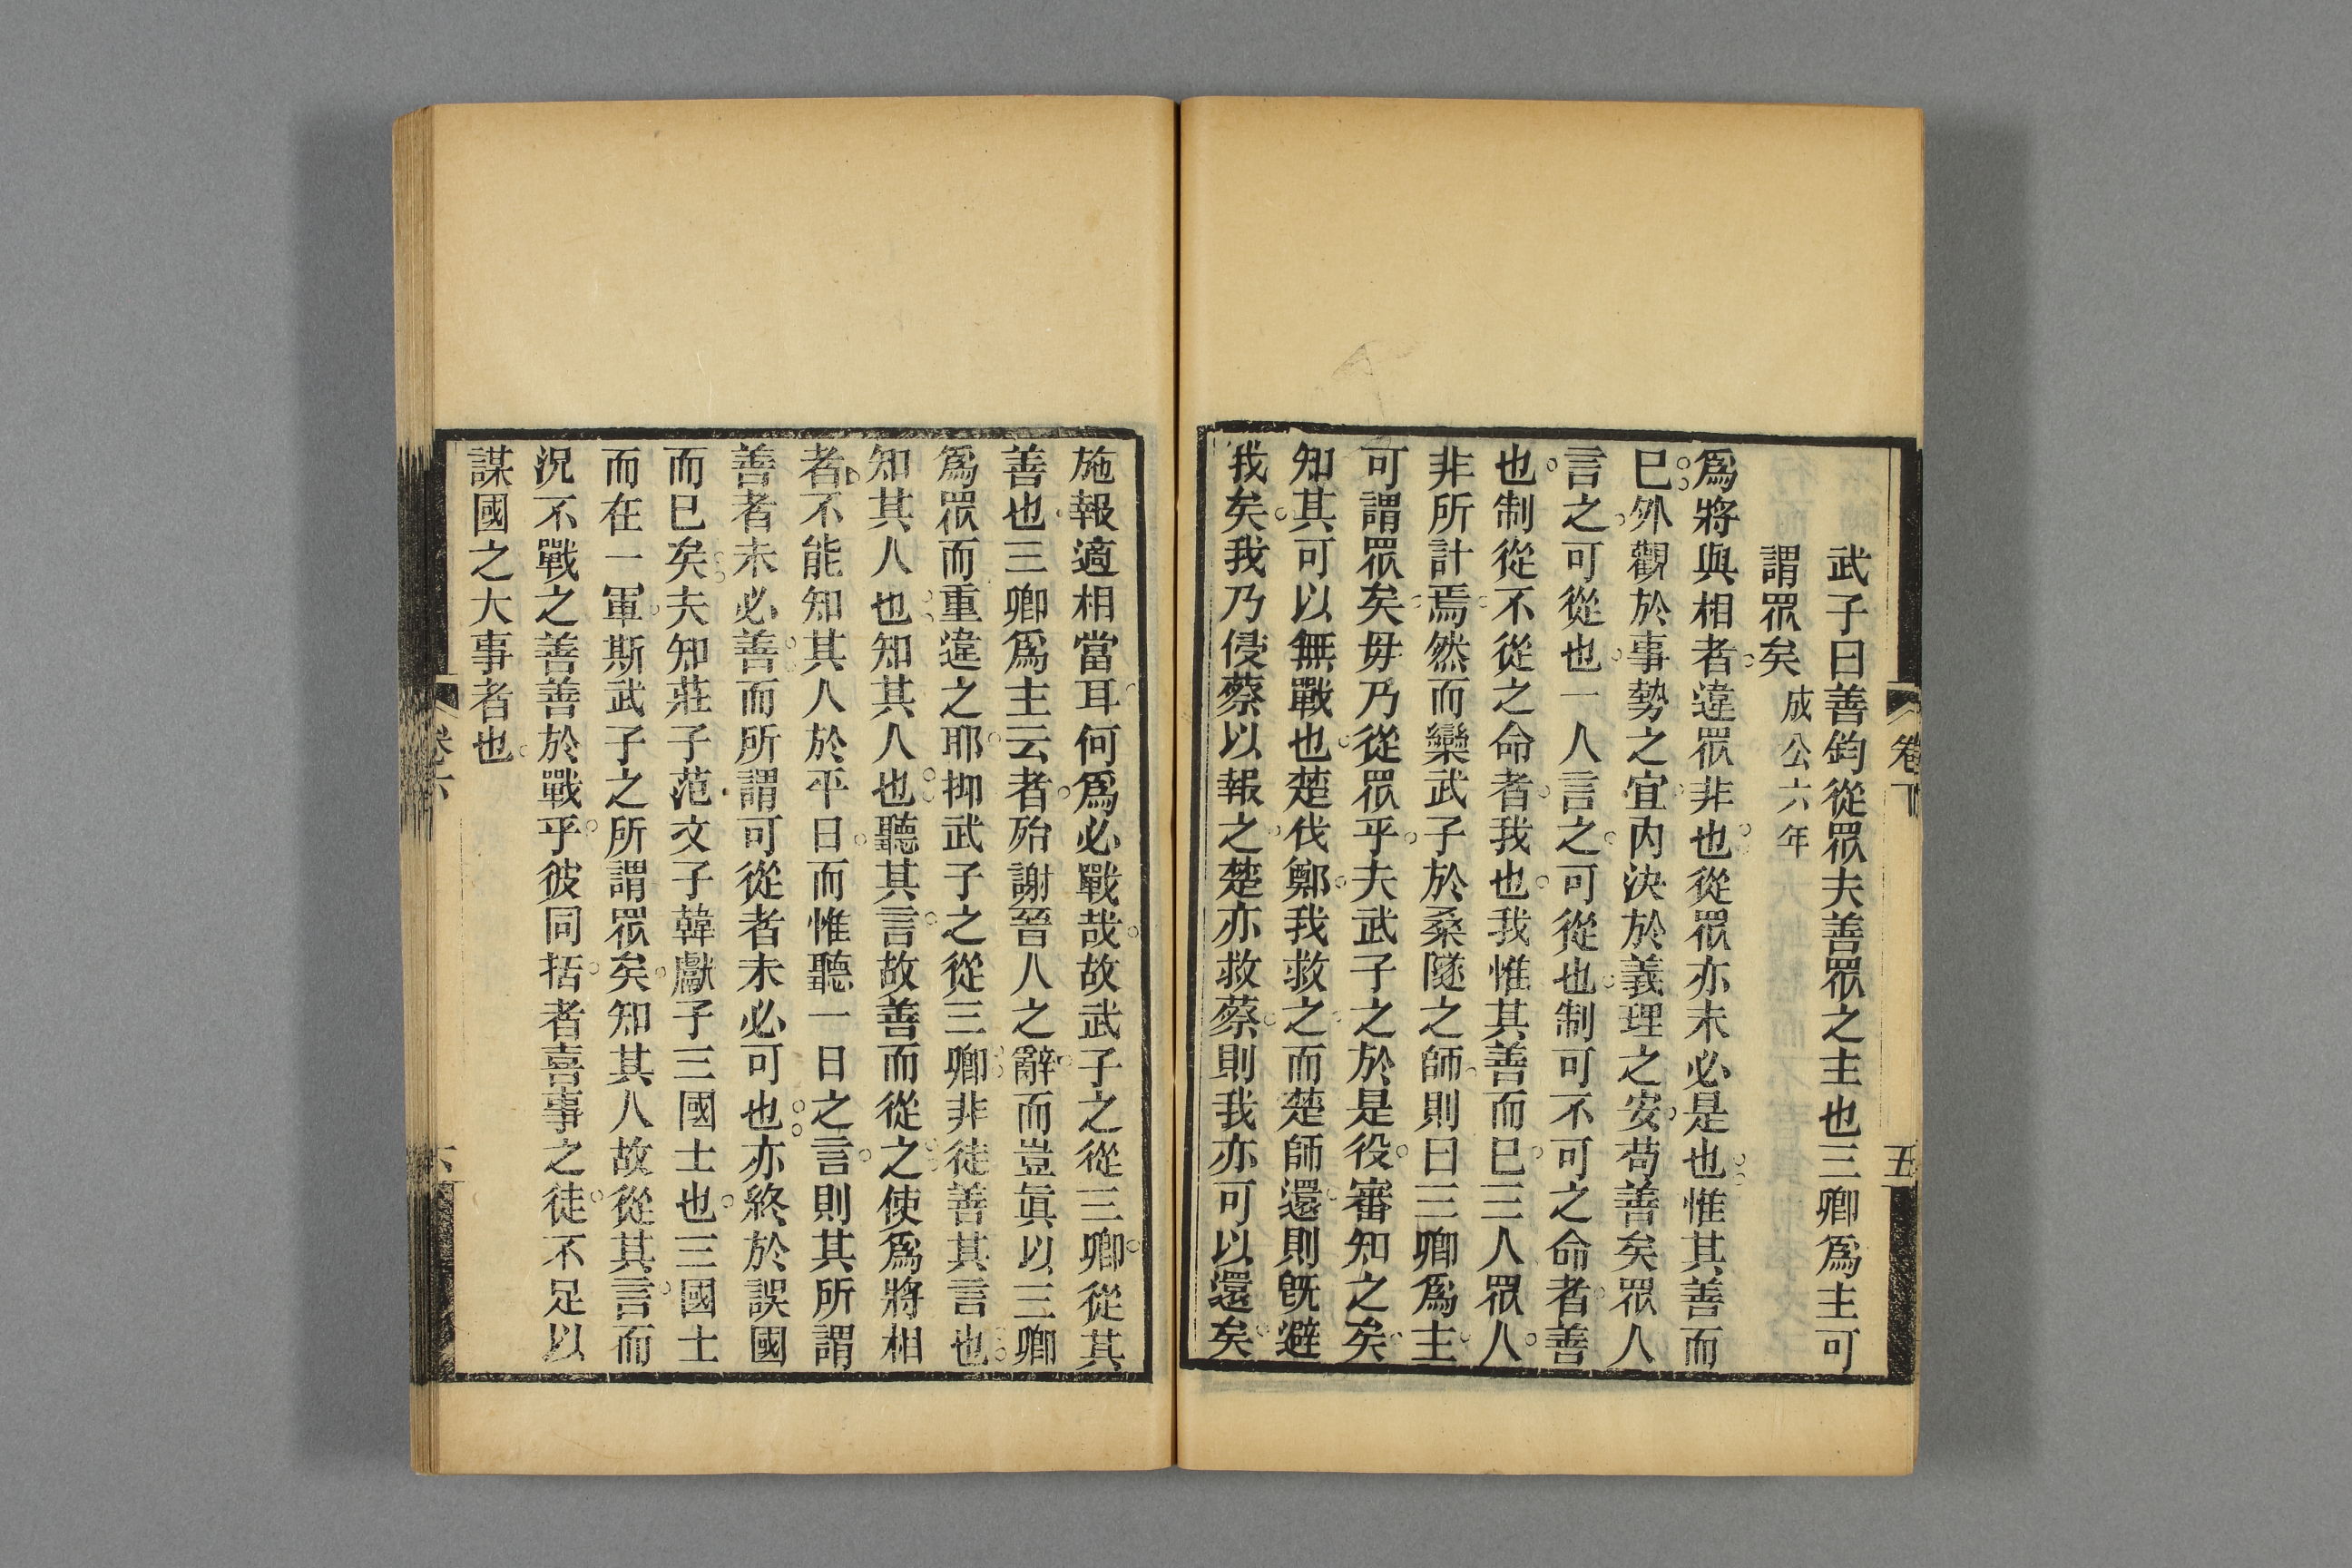 武子曰善鈞從眾夫善眾之主也三卿爲主可
謂眾矣 成公六年
爲將與相者違眾非也從眾亦未必是也惟其善而
已外觀於事勢之宜內決於義理之安苟善矣眾人
言之可從也一人言之可從也制可不可之命者善
也制從不從之命者我也我惟其善而已三人眾人
非所計焉然而欒武子於桑隧之師則曰三卿爲主
可謂眾矣毋乃從眾乎夫武子之於是役審知之矣
知其可以無戰也楚伐鄭我救之而楚師還則旣避
我矣我乃侵蔡以報之楚亦救蔡則我亦可以還矣
卷六
五
施報適相當耳何爲必戰哉故武子之從三卿從其
善也三卿爲主云者殆謝晉人之辭而豈眞以三卿
爲眾而重違之耶抑武子之從三卿非徒善其言也
知其人也知其人也聽其言故善而從之使爲將相
者不能知其人於平日而惟聽一日之言則其所謂
善者未必善而所謂可從者未必可也亦終於誤國
而已矣夫知莊子范文子韓獻子三國士也三國士
而在一軍斯武子之所謂眾矣知其人故從其言而
況不戰之善善於戰乎彼同括者喜事之徒不足以
謀國之大事者也
卷六
六